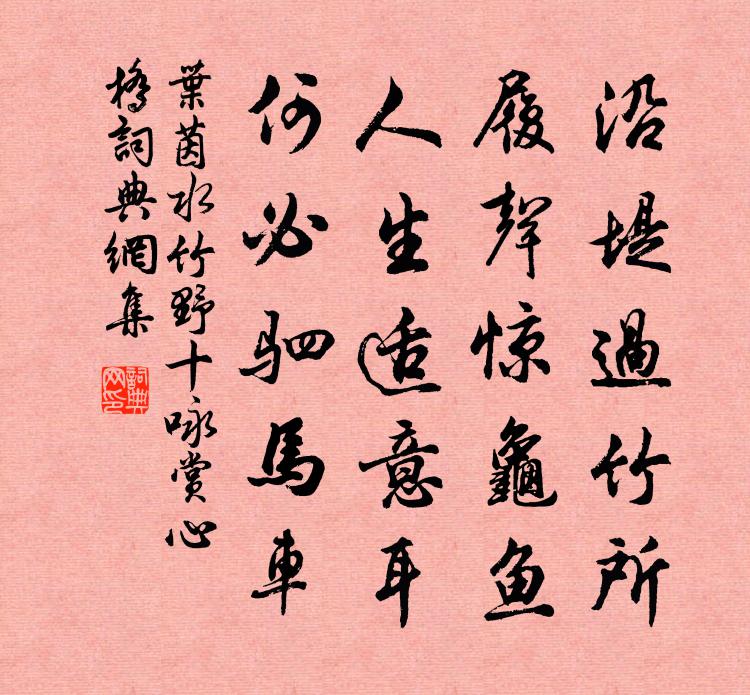 沿堤過竹所
履聲惊龜鱼
人生适意耳
何必驷馬車
葉茵水竹野十咏賞心
橋詞典網集
詞典网印